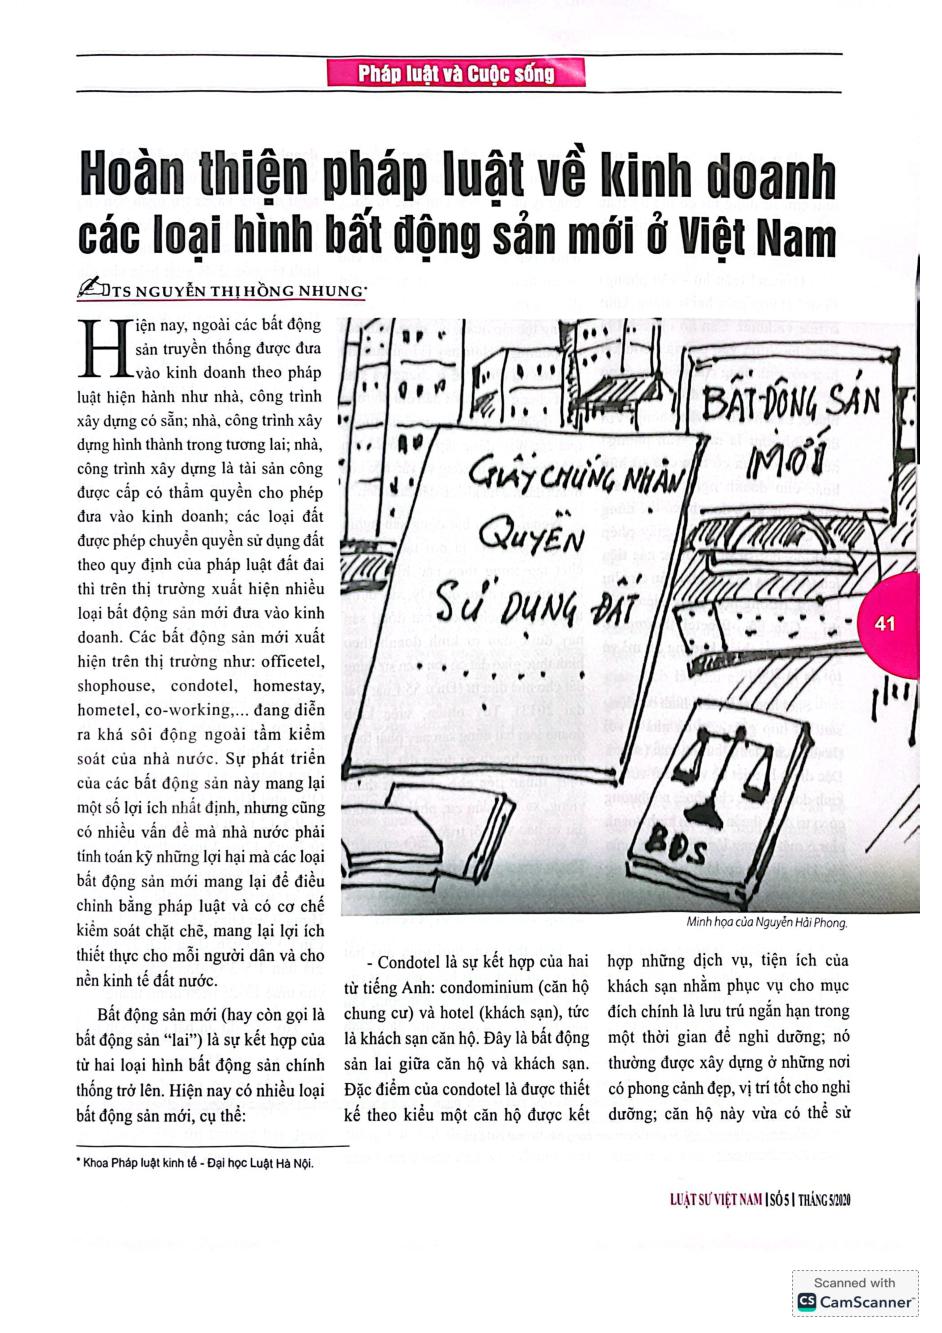 Pháp luật và Cuộc sống
Hoàn thiện pháp luật về kinh doanh
các loại hình bất động sản mới ở Việt Nam
TS NGUYỄN THỊ HỒNG NHUNG*
Hiện nay, ngoài các bất động
sản truyền thống được đưa
vào kinh doanh theo pháp
luật hiện hành như nhà, công trình
xây dựng có sẵn; nhà, công trình xây
dựng hình thành trong tương lai; nhà,
công trình xây dựng là tài sản công
được cấp có thẩm quyền cho phép
đưa vào kinh doanh; các loại đất
được phép chuyển quyền sử dụng đất
theo quy định của pháp luật đất đai
thì trên thị trường xuất hiện nhiều
loại bất động sản mới đưa vào kinh
doanh. Các bất động sản mới xuất
hiện trên thị trường như: officetel,
shophouse, condotel, homestay,
hometel, co-working,... đang diễn
ra khá sôi động ngoài tầm kiểm
soát của nhà nước. Sự phát triển
của các bất động sản này mang lại
một số lợi ích nhất định, nhưng cũng
có nhiều vấn đề mà nhà nước phải
tính toán kỹ những lợi hại mà các loại
bất động sản mới mang lại để điều
chỉnh bằng pháp luật và có cơ chế
kiểm soát chặt chẽ, mang lại lợi ích
thiết thực cho mỗi người dân và cho
nền kinh tế đất nước.
Bất động sản mới (hay còn gọi là
bất động sản “lai”) là sự kết hợp của
từ hai loại hình bất động sản chính
thống trở lên. Hiện nay có nhiều loại
bất động sản mới, cụ thể:
BẤT ĐỘNG SẢN
MỚI
GIẤY CHỨNG NHẬN
QUYỀN
SỬ DỤNG ĐẤT
BĐS
Minh họa của Nguyễn Hải Phong.
- Condotel là sự kết hợp của hai
từ tiếng Anh: condominium (căn hộ
chung cư) và hotel (khách sạn), tức
là khách sạn căn hộ. Đây là bất động
sản lai giữa căn hộ và khách sạn.
Đặc điểm của condotel là được thiết
kế theo kiểu một căn hộ được kết
hợp những dịch vụ, tiện ích của
khách sạn nhằm phục vụ cho mục
đích chính là lưu trú ngắn hạn trong
một thời gian để nghỉ dưỡng; nó
thường được xây dựng ở những nơi
có phong cảnh đẹp, vị trí tốt cho nghỉ
dưỡng; căn hộ này vừa có thể sử
41
* Khoa Pháp luật kinh tế - Đại học Luật Hà Nội.
LUẬT SƯ VIỆT NAM | SỐ 5 | THÁNG 5/2020
Scanned with
CS CamScanner